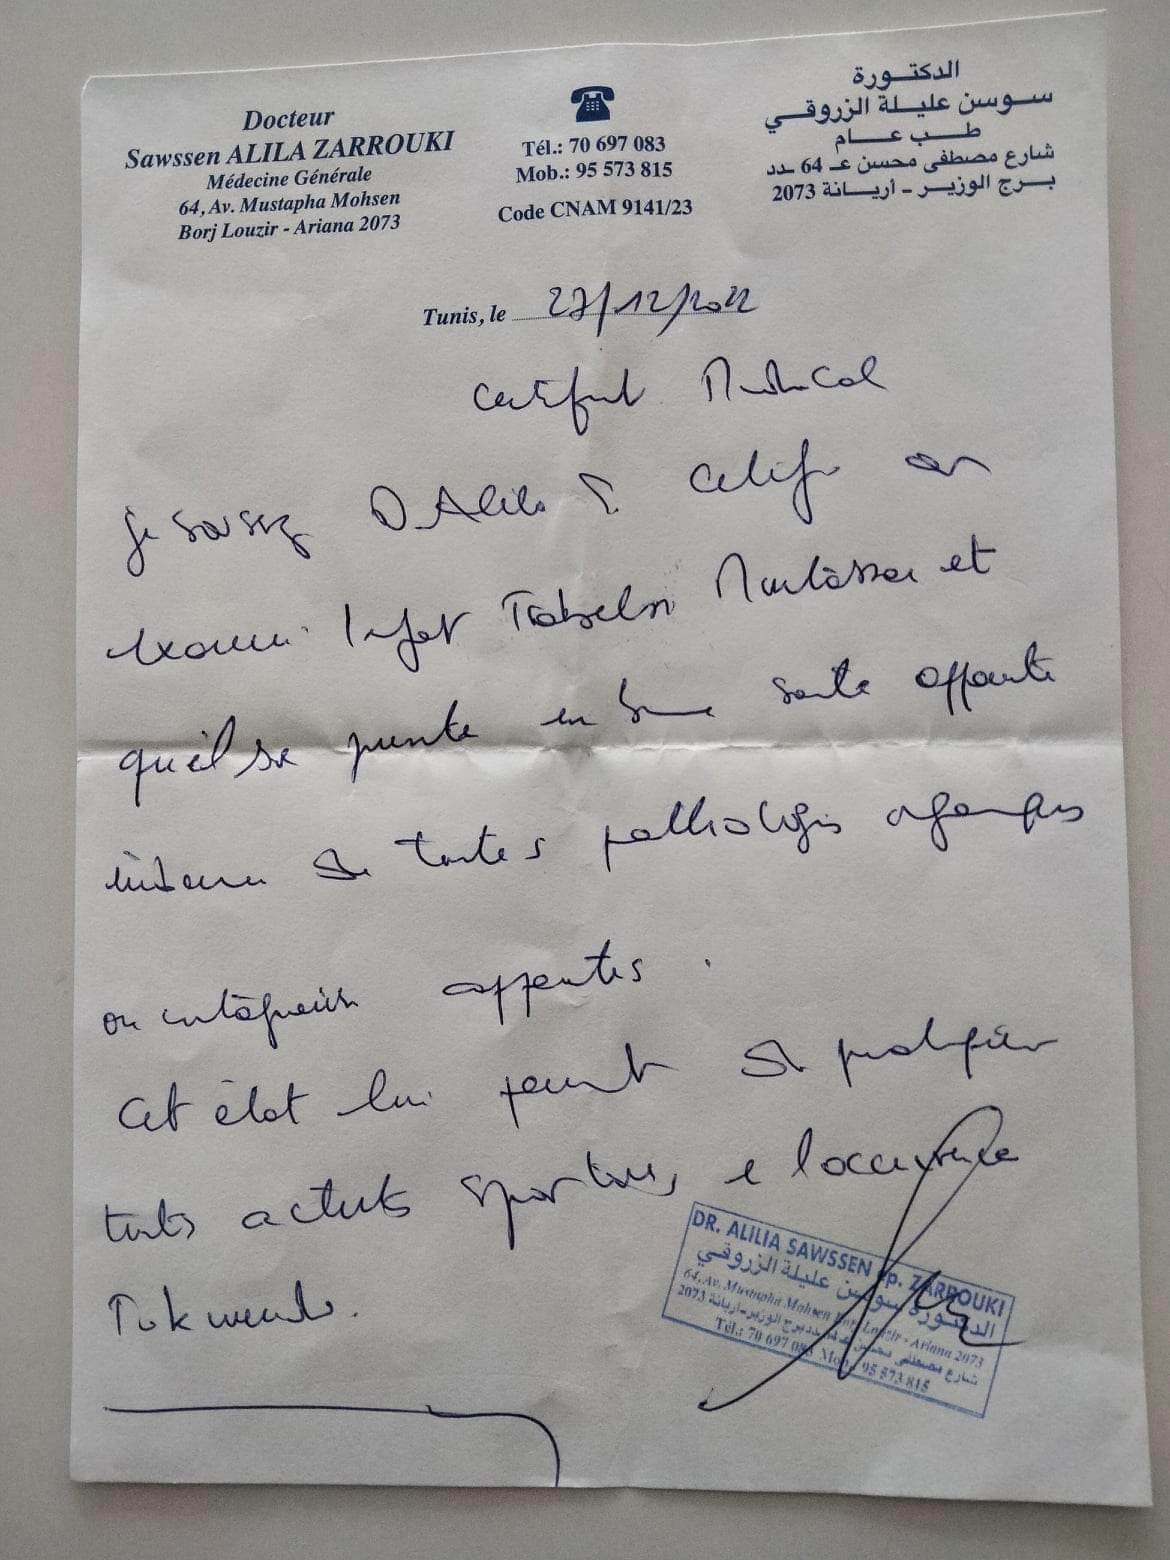 Docteur
Sawssen ALILA ZARROUKI
Médecine Générale
64, Av. Mustapha Mohsen
Borj Louzir - Ariana 2073
Tél.: 70 697 083
Mob.: 95 573 815
Code CNAM 9141/23
الدكتورة
سوسن عليلة الزروقي
طب عام
شارع مصطفى محسن عـ 64 ـدد
برج الوزير - أريانة 2073
Tunis, le 27/12/2022
Certificat Médical
Je soussignée D. Alila S. certifie avoir
examiné l'enfant Trabelsi et
qu'il se présente en bonne santé apparente
indemne de toutes pathologies organiques
ou apparentes.
Cet état lui permet de pratiquer
toutes activités sportives, l'occurrence
DR. ALILIA SAWSSEN ép. ZARROUKI
الدكتورة سوسن عليلة الزروقي
64, Av. Mustapha Mohsen Borj Louzir - Ariana 2073
شارع مصطفى محسن عدد برج الوزير-أريانة 2073
Tél.: 70 697 083 Mob.: 95 573 815